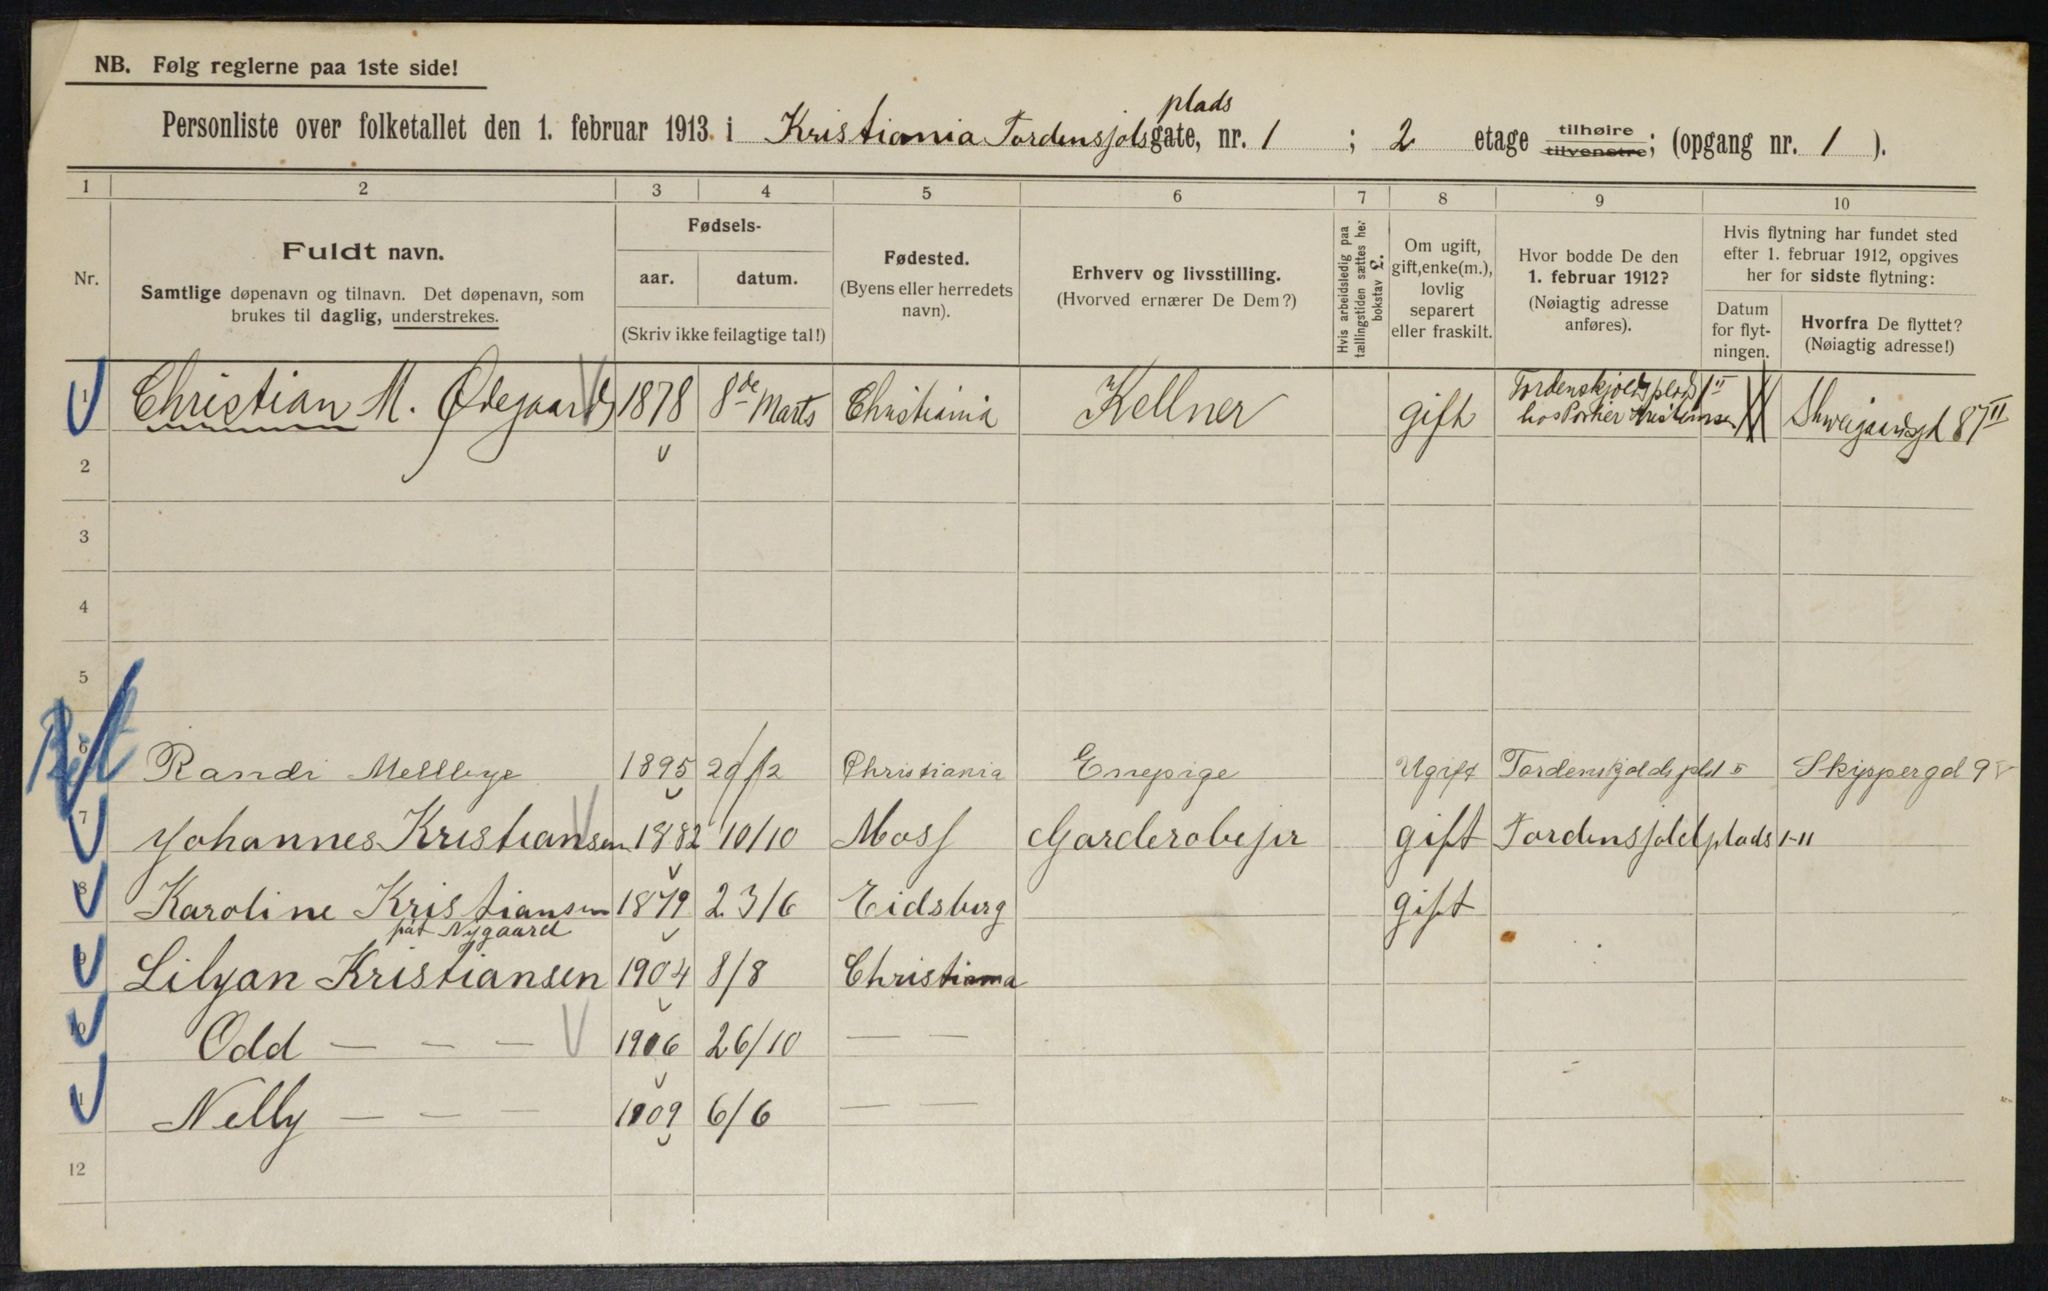 NB. Følg reglerne paa 1ste side!
plads
Personliste over folketallet den 1. februar 1913 i Kristiania Tordensjolsgate, nr. 1 ; 2 etage tilhøire tilvenstre; (opgang nr. 1 ).
1 2 3 4 5 6 7 8 9 10
Nr.
Fuldt navn.
Samtlige døpenavn og tilnavn. Det døpenavn, som
brukes til daglig, understrekes.
Fødsels-
aar. datum.
(Skriv ikke feilagtige tal!)
Fødested.
(Byens eller herredets
navn).
Erhverv og livsstilling.
(Hvorved ernærer De Dem?)
Hvis arbeidsledig paa
tællingstiden sættes her
bokstav L.
Om ugift,
gift, enke(m.),
lovlig
separert
eller fraskilt.
Hvor bodde De den
1. februar 1912?
(Nøiagtig adresse
anføres).
Hvis flytning har fundet sted
efter 1. februar 1912, opgives
her for sidste flytning:
Datum
for flyt-
ningen.
Hvorfra De flyttet?
(Nøiagtig adresse!)
1 Christian M. Ødegaard 1878 8de Marts Christiania Kellner gift Tordenskjolds plads 1 II
hos Portier Kristiansen 87 II
2
3
4
5
6 Randi Mellbye 1895 Christiania Enepige Ugift Tordenskjolds pld II Skippergd 9
7 Johannes Kristiansen 1882 10/10 Moss Garderobejer gift Tordensjoldplads 1-II
8 Karoline Kristiansen 1879 23/6 Eidsberg gift
Nygaard
9 Lilyan Kristiansen 1904 8/8 Christiania
10 Odd — — — 1906 26/10 — —
11 Nelly — — — 1909 6/6 — —
12